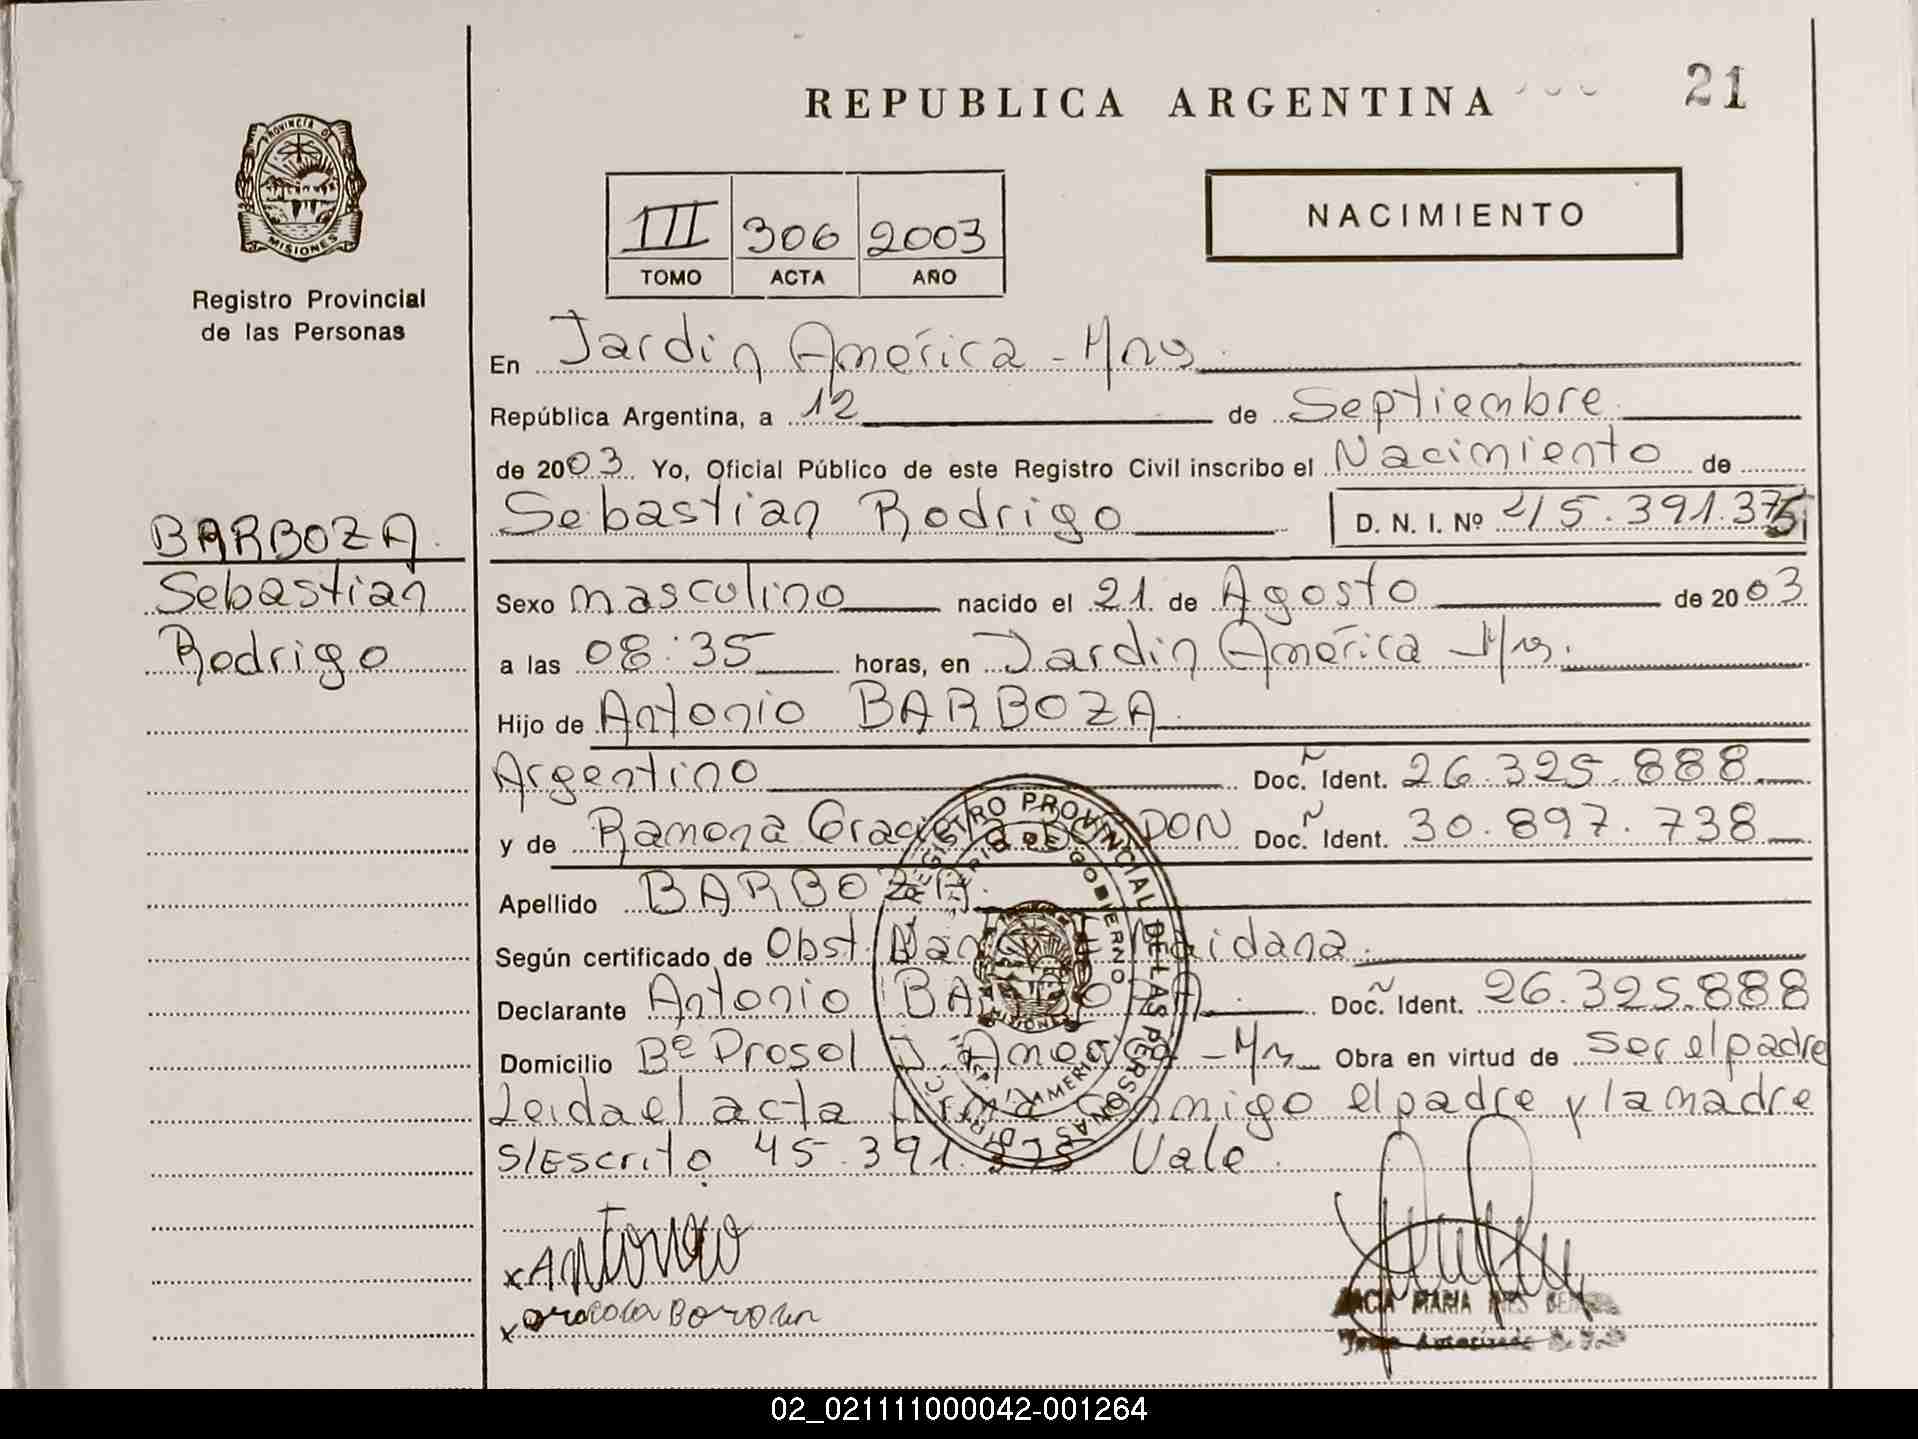 REPUBLICA ARGENTINA
21
PROVINCIA DE
MISIONES
Registro Provincial
de las Personas
III 306 2003
TOMO ACTA AÑO
NACIMIENTO
En Jardin América - Mns.
República Argentina, a 12 de Septiembre
de 2003. Yo, Oficial Público de este Registro Civil inscribo el Nacimiento de
Sebastian Rodrigo D. N. I. Nº 45.391.375
BARBOZA.
Sebastian
Rodrigo
Sexo masculino nacido el 21 de Agosto de 2003
a las 08:35 horas, en Jardin América Mns.
Hijo de Antonio BARBOZA.
Argentino Doc. Ident. 26.325.888
y de Ramona DON Doc. Ident. 30.897.738
Apellido BARBOZA.
Según certificado de Obst. Maidana.
Declarante Antonio BARBOZA. Doc. Ident. 26.325.888
Domicilio Bº Prosol J. America - Mns Obra en virtud de ser el padre
Leida el acta firma conmigo el padre y la madre
S/Escrito 45.391.375 Vale.
REGISTRO PROVINCIAL DE LAS PERSONAS
MINISTERIO DE GOBIERNO
MISIONES
x Antonio
x
MARIA INES
Autorizada
02_021111000042-001264